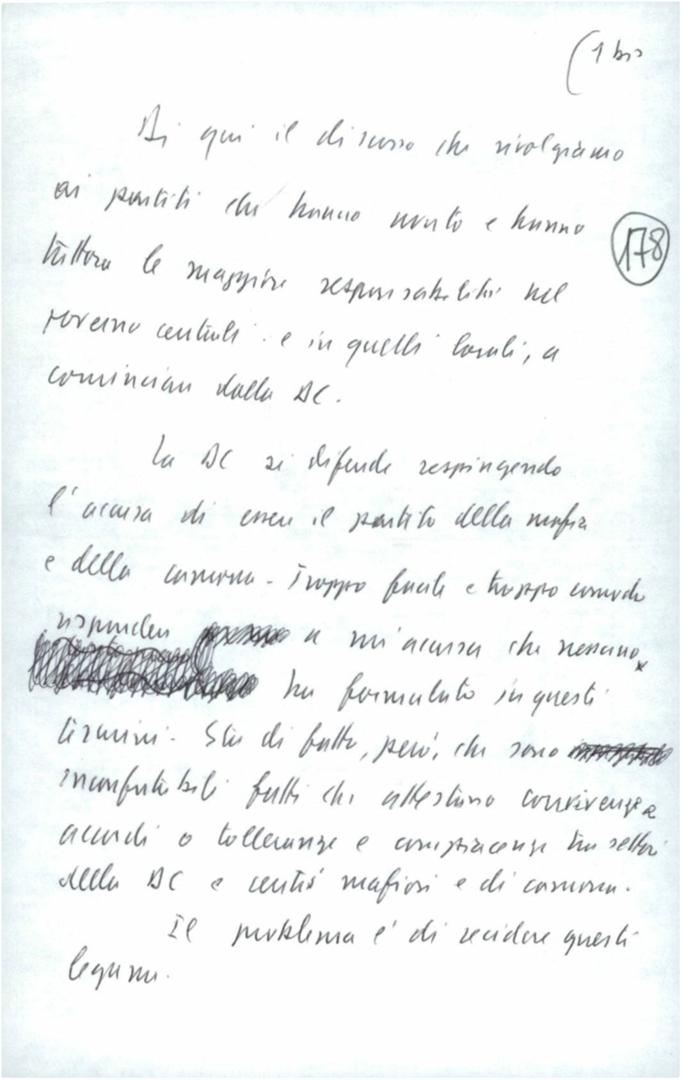 (1 bis
Di qui il discorso che rivolgiamo
ai partiti che hanno avuto e hanno
178
tuttora le maggiori responsabilità nel
governo centrale e in quelli locali, a
cominciare dalla DC.
La DC si difende respingendo
l'accusa di essere il partito della mafia
e della camorra. Troppo facile e troppo comodo
rispondere a un'accusa che nessuno
ha formulato in questi
termini. Sta di fatto, però, che sono
inconfutabili fatti che attestano convivenze
accordi o tolleranze e compiacenze tra settori
della DC e centri mafiosi e di camorra.
Il problema è di recidere questi
legami.